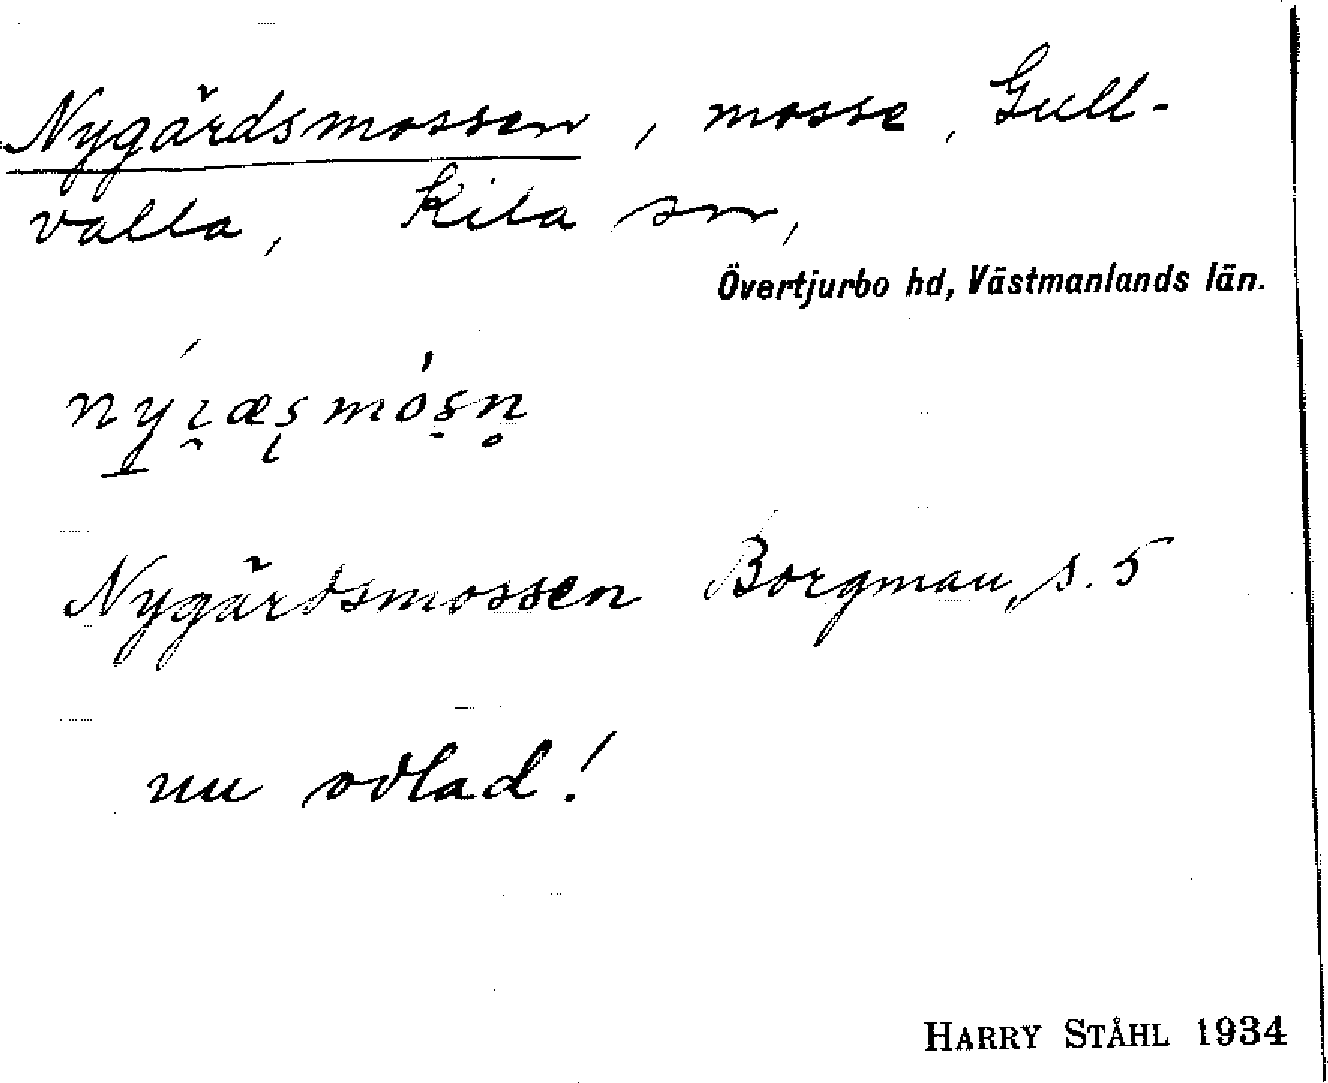 Nygårdsmossen, mosse, Gull-
valla, Kila sn,
Övertjurbo hd, Västmanlands län.
Nygårdsmossen Borgman, s. 5
nu odlad!
HARRY STÅHL 1934